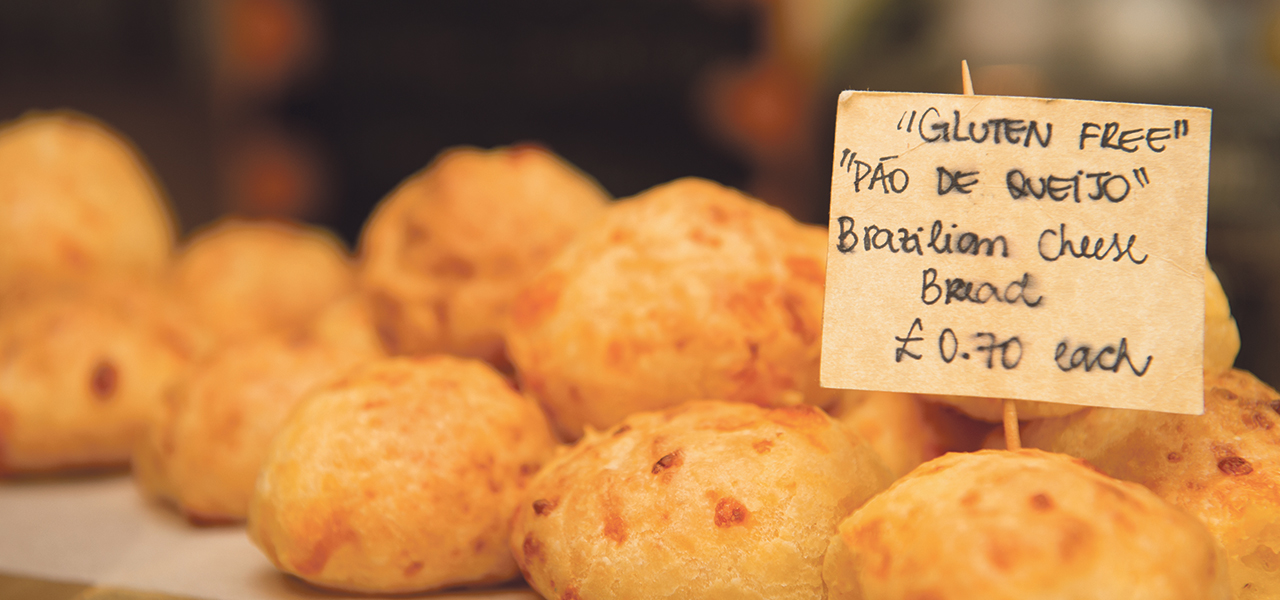 "GLUTEN FREE"
"PÃO DE QUEIJO"
Brazilian Cheese
Bread
£0.70 each